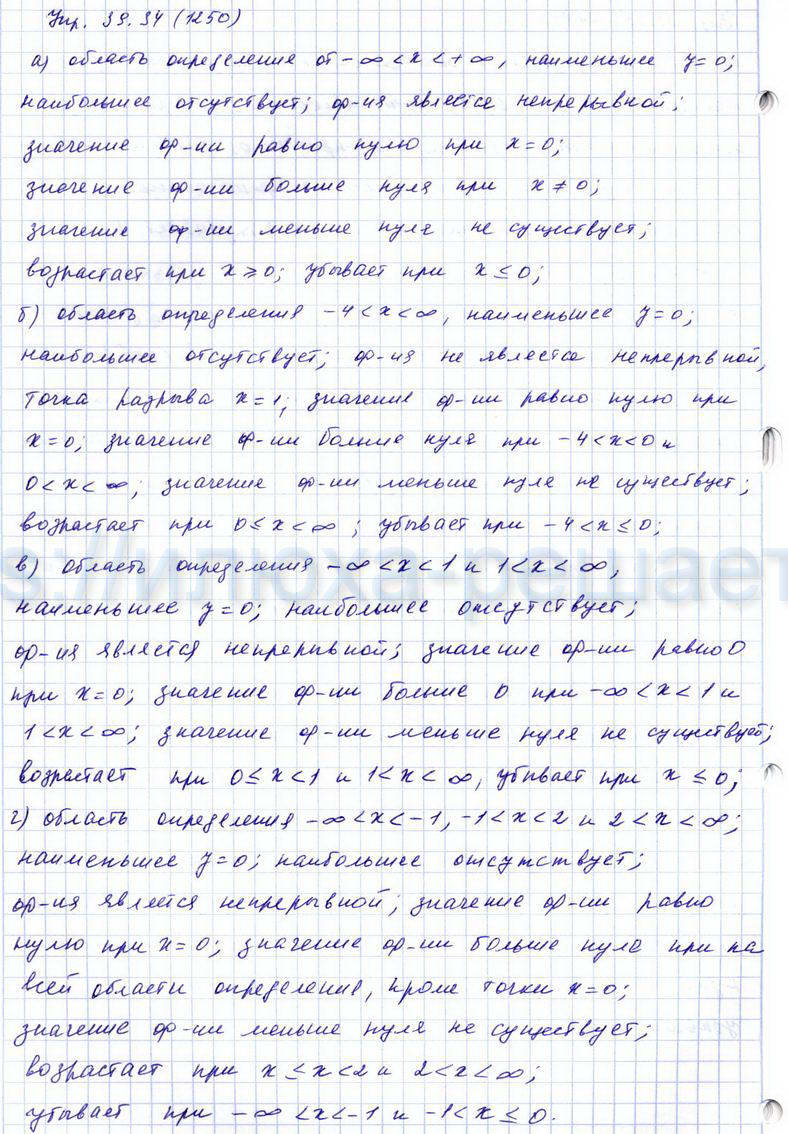 Упр. 39.34 (1250)
а) область определение от -∞ < x < +∞, наименьшее y=0;
наибольшее отсутствует; ф-ия является непрерывной;
значение ф-ии равно нулю при x=0;
значение ф-ии больше нуля при x ≠ 0;
значение ф-ии меньше нуля не существует;
возрастает при x ≥ 0; убывает при x ≤ 0;
б) область определения -4 < x < ∞, наименьшее y=0;
наибольшее отсутствует; ф-ия не является непрерывной,
точка разрыва x=1; значение ф-ии равно нулю при
x=0; значение ф-ии больше нуля при -4 < x < 0 и
0 < x < ∞; значение ф-ии меньше нуля не существует;
возрастает при 0 ≤ x < ∞; убывает при -4 < x ≤ 0;
s://илюха-решает
в) область определения -∞ < x < 1 и 1 < x < ∞,
наименьшее y=0; наибольшее отсутствует;
ф-ия является непрерывной; значение ф-ии равно 0
при x=0; значение ф-ии больше 0 при -∞ < x < 1 и
1 < x < ∞; значение ф-ии меньше нуля не существует;
возрастает при 0 ≤ x < 1 и 1 < x < ∞, убывает при x ≤ 0;
г) область определения -∞ < x < -1, -1 < x < 2 и 2 < x < ∞;
наименьшее y=0; наибольшее отсутствует;
ф-ия является непрерывной; значение ф-ии равно
нулю при x=0; значение ф-ии больше нуля при на
всей области определения, кроме точки x=0;
значение ф-ии меньше нуля не существует;
возрастает при x ≤ x < 2 и 2 < x < ∞;
убывает при -∞ < x < -1 и -1 < x ≤ 0.